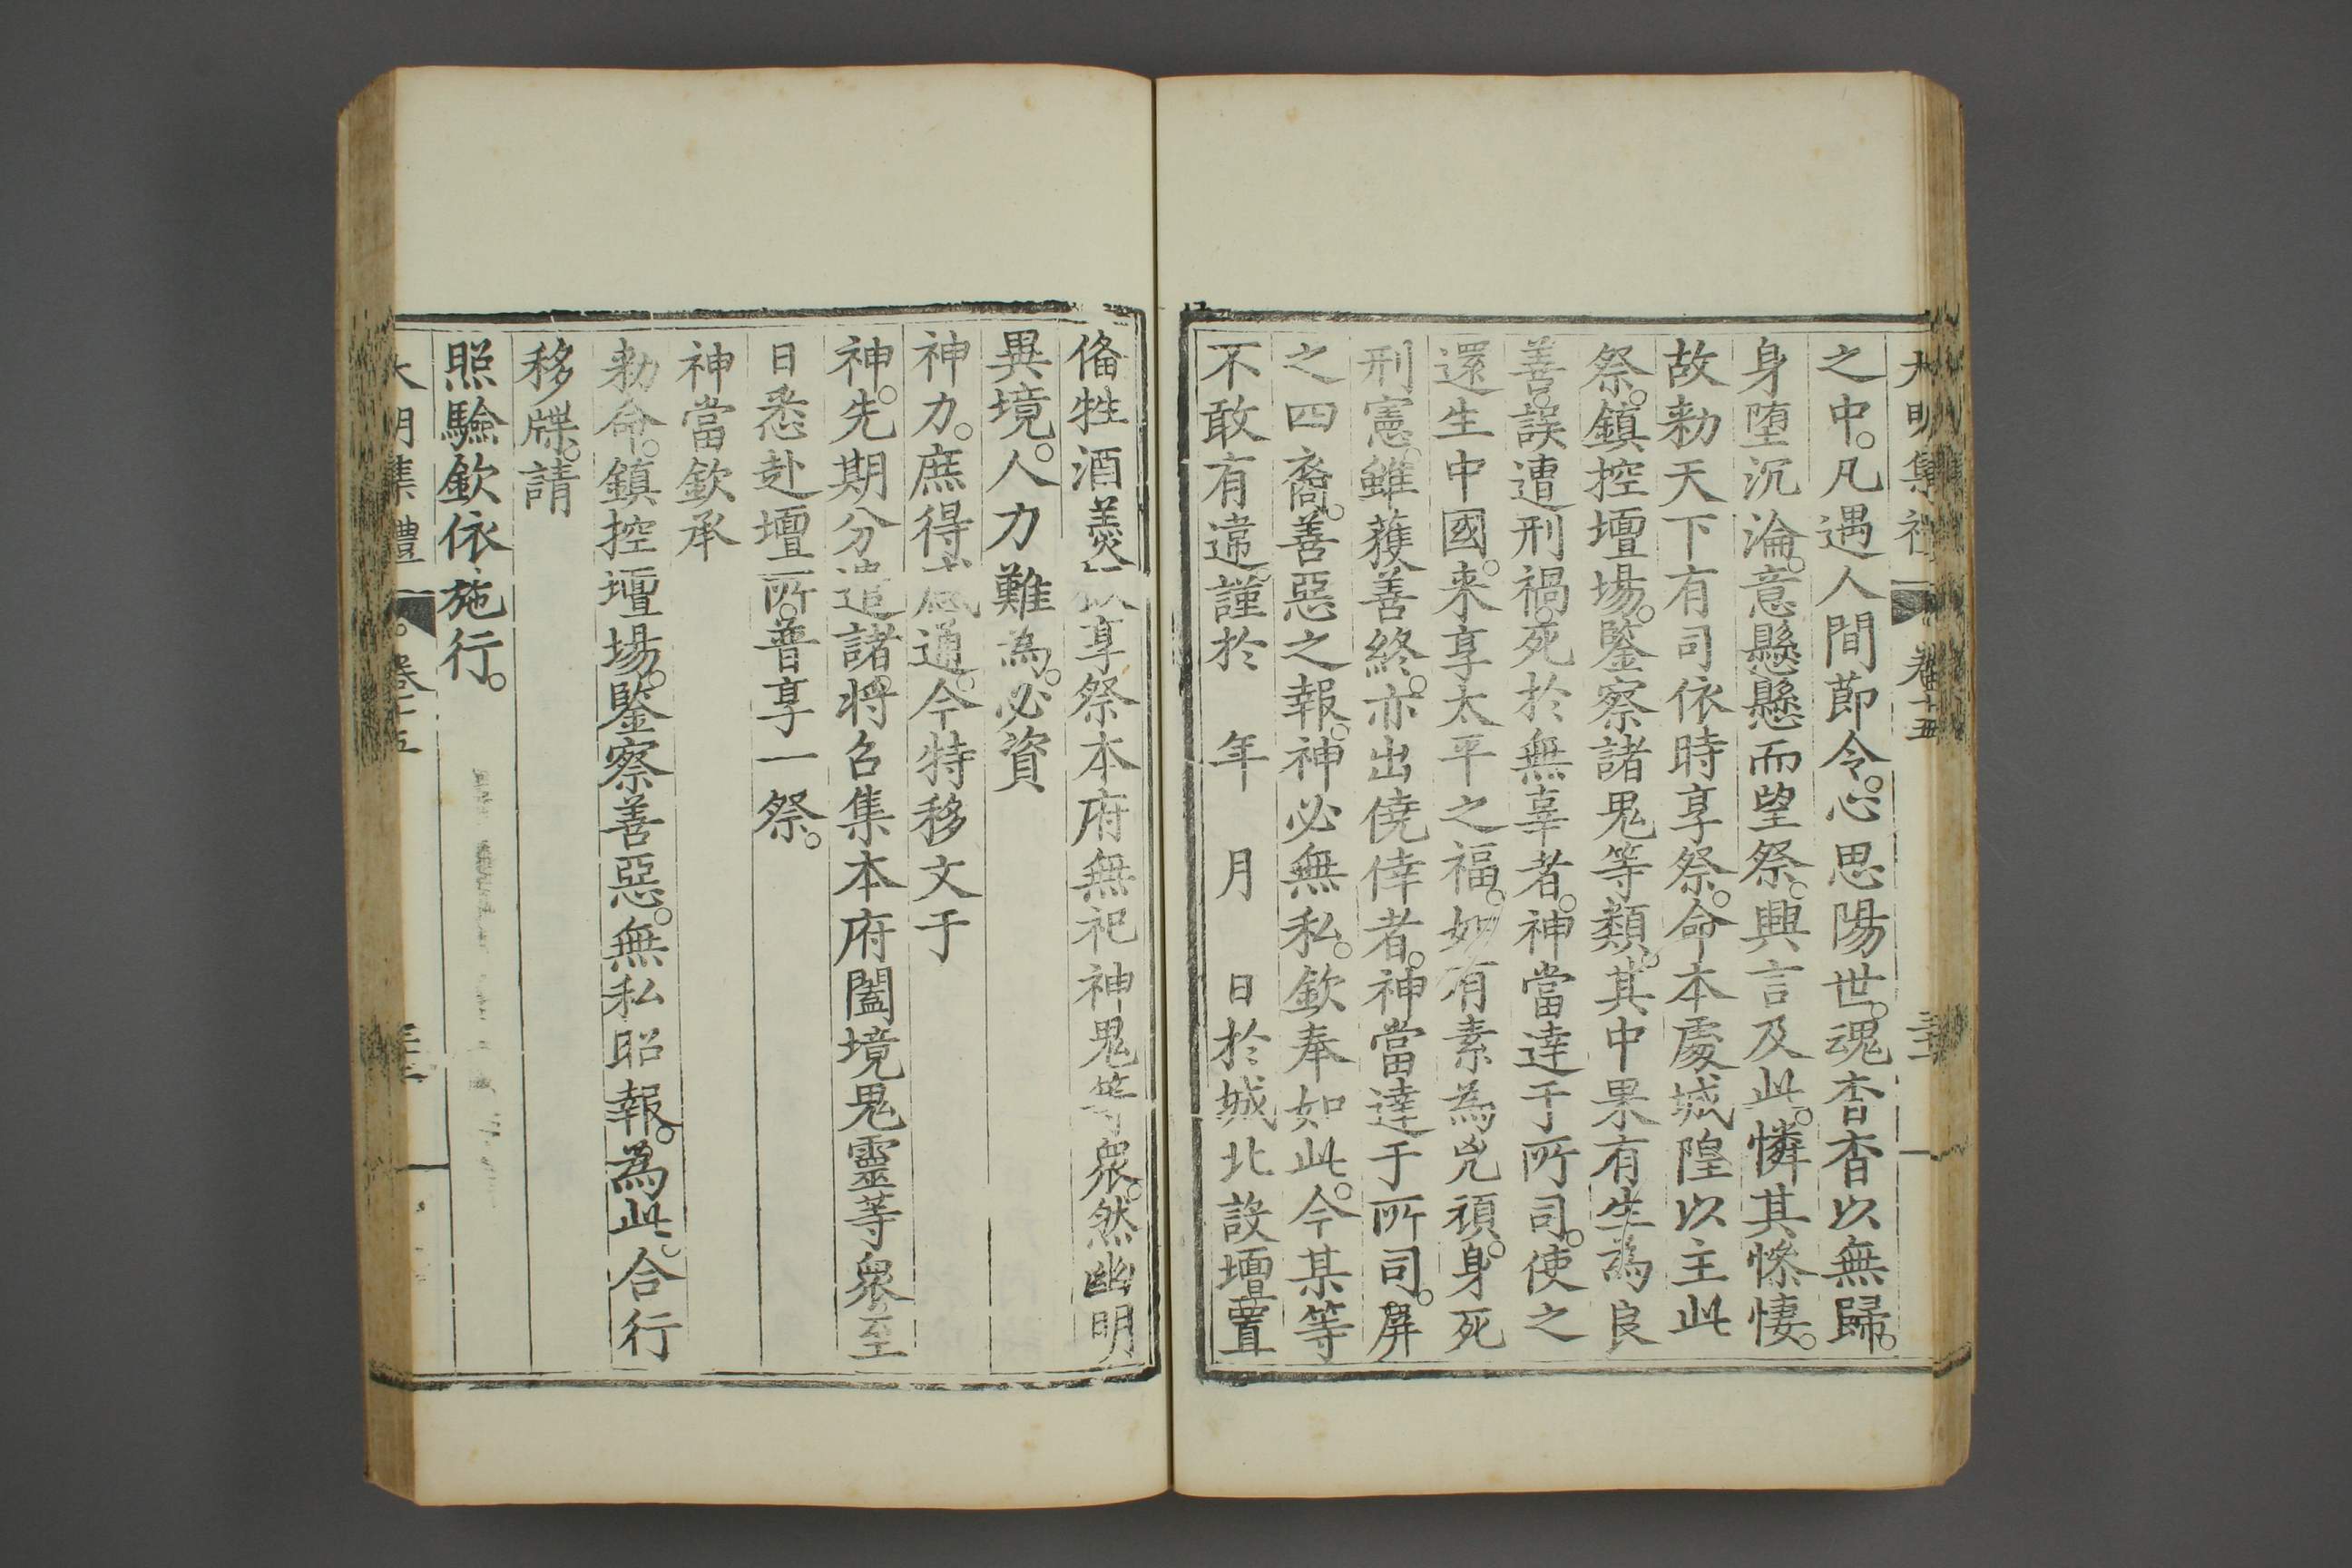 大明集禮 卷十五
之中。凡遇人間節令。心思陽世。魂杳杳以無歸。
身堕沉淪。意懸懸而望祭。興言及此。憐其慘悽。
故勑天下有司依時享祭。命本處城隍以主此
祭。鎮控壇場。鑒察諸鬼等類。其中果有生為良
善。誤遭刑禍。死於無辜者。神當達于所司。使之
還生中國。来享太平之福。如有素為兇頑。身死
刑憲。雖獲善終。亦出僥倖者。神當達于所司。屏
之四裔。善惡之報。神必無私。欽奉如此。今某等
不敢有違。謹於 年 月 日於城北設壇置
俻牲酒羮飯享祭本府無祀神鬼等衆。然幽明
異境。人力難為。必資
神力。庶得感通。今特移文于
神。先期分遣諸將召集本府闔境鬼靈等衆。至
日悉赴壇所。普享一祭。
神當欽承
勑命。鎮控壇場。鑒察善惡。無私昭報。為此。合行
移牒。請
照驗欽依施行。
大明集禮 卷十五